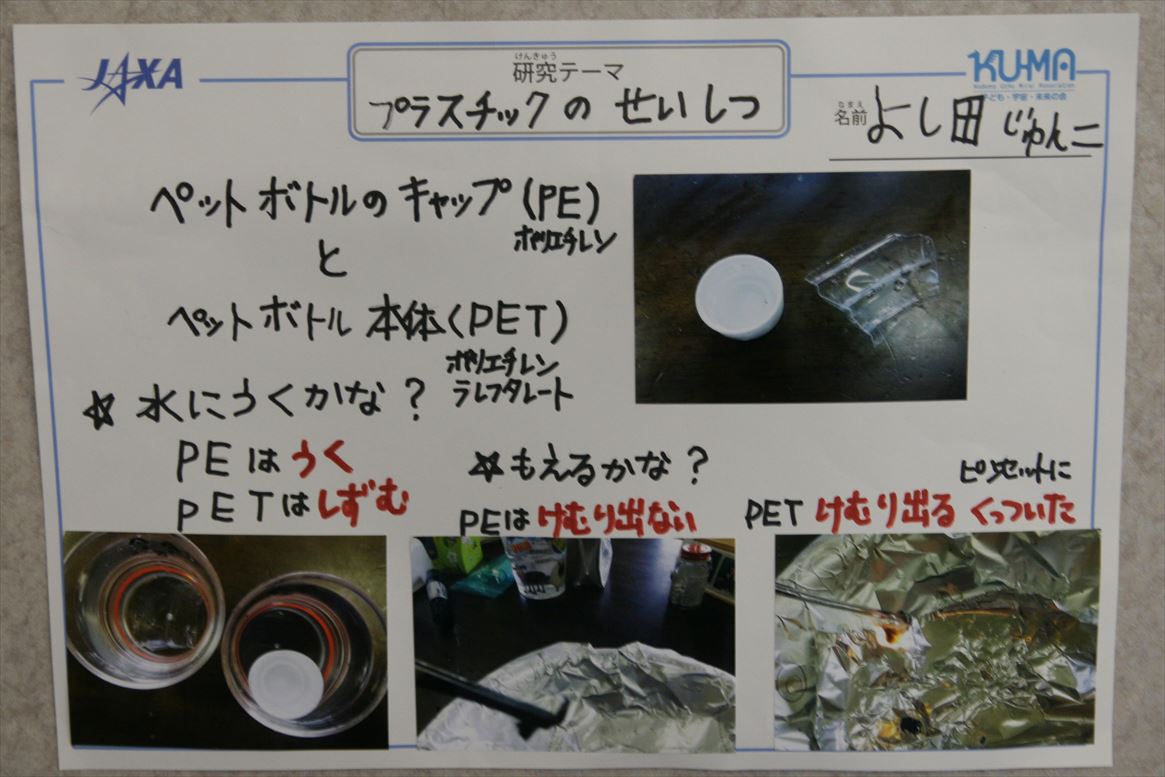 JAXA
けんきゅう
研究テーマ
プラスチックの せいしつ
KUMA
子ども・宇宙・未来の会
なまえ
名前 よし田 じゅん二
ペットボトルの キャップ(PE)
ポリエチレン
と
ペットボトル 本体(PET)
ポリエチレン
テレフタレート
☆ 水にうくかな?
PEは うく
PETは しずむ
☆もえるかな?
PEは けむり出ない
ピンセットに
PET けむり出る くっついた